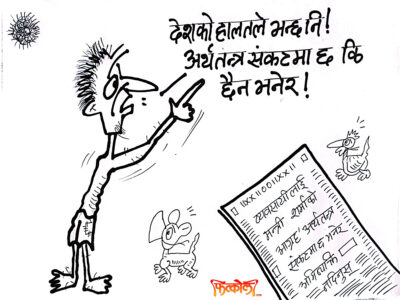 देशको हालतले भन्छ नि!
अर्थतन्त्र संकटमा छ कि
छैन भनेर!
व्यवसायीलाई
मन्त्री शर्माको
आग्रह अर्थतन्त्र
संकटमा छ भनेर
अभिव्यक्ति
नदिनुस्
फित्कौली